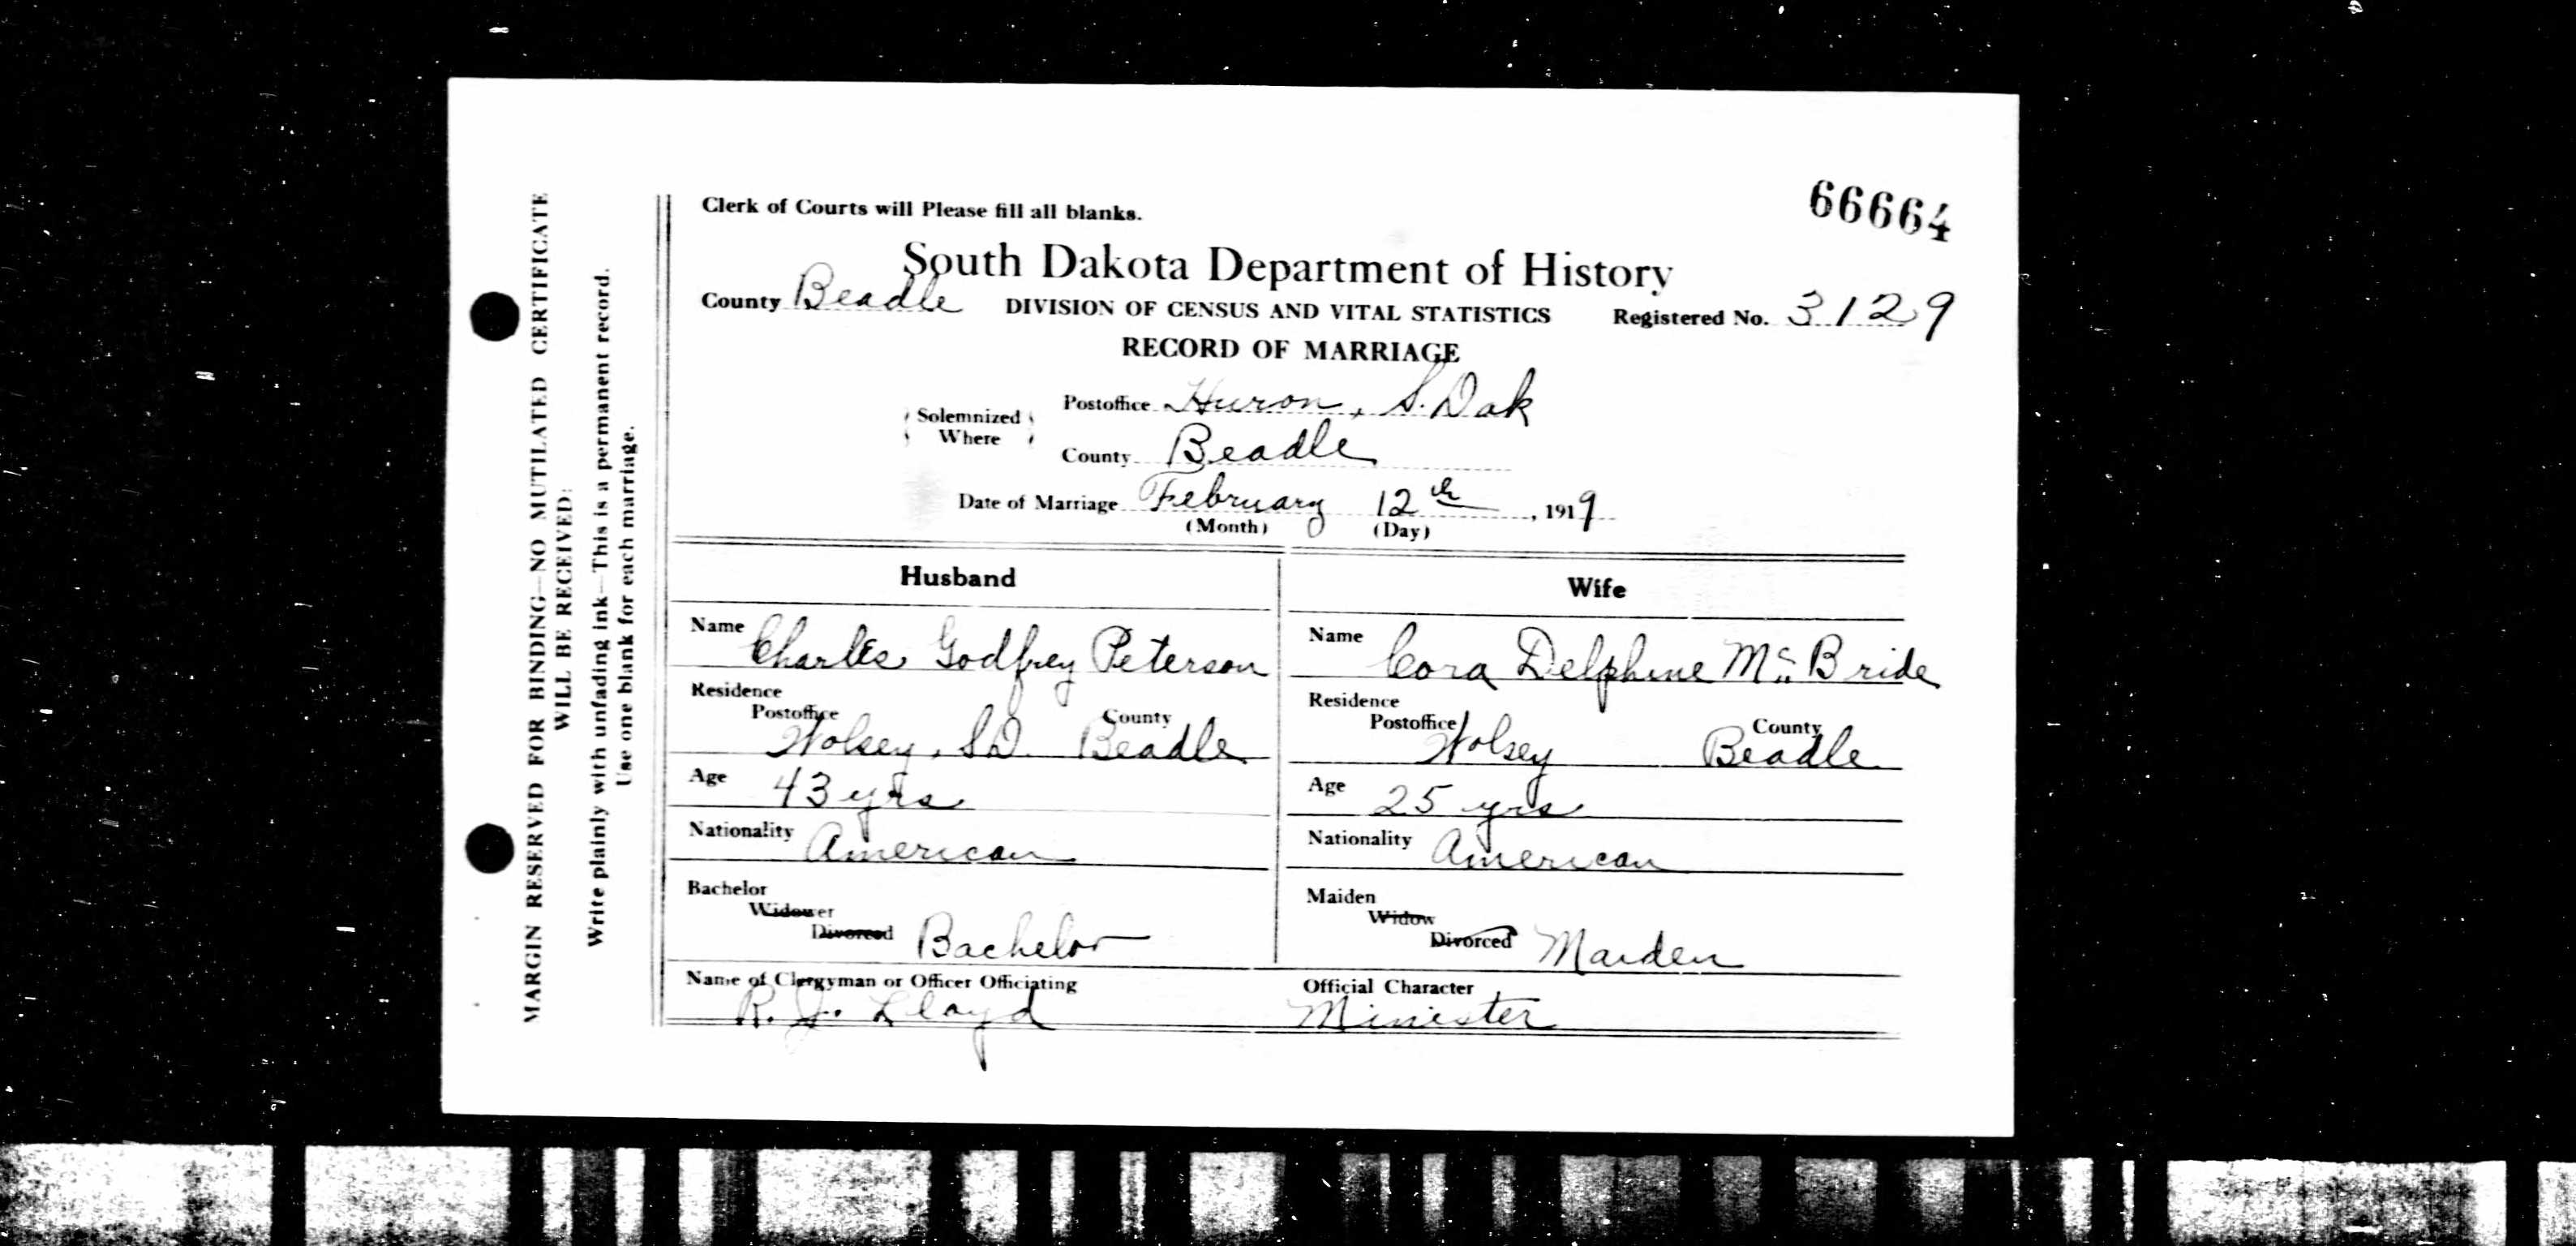 66664
Clerk of Courts will Please fill all blanks.
South Dakota Department of History
County Beadle DIVISION OF CENSUS AND VITAL STATISTICS Registered No. 3129
RECORD OF MARRIAGE
Solemnized Where Postoffice Huron, S. Dak
County Beadle
Date of Marriage February 12th, 1919
(Month) (Day)
Husband Wife
Name Charles Godfrey Peterson Name Cora Delphine McBride
Residence Residence
Postoffice County Postoffice County
Wolsey, S.D. Beadle Wolsey Beadle
Age 43 yrs Age 25 yrs
Nationality American Nationality American
Bachelor Maiden
Widower Widow
Divorced Bachelor Divorced Maiden
Name of Clergyman or Officer Officiating Official Character
R. J. Lloyd Minister
MARGIN RESERVED FOR BINDING—NO MUTILATED CERTIFICATE
WILL BE RECEIVED:
Write plainly with unfading ink—This is a permanent record.
Use one blank for each marriage.